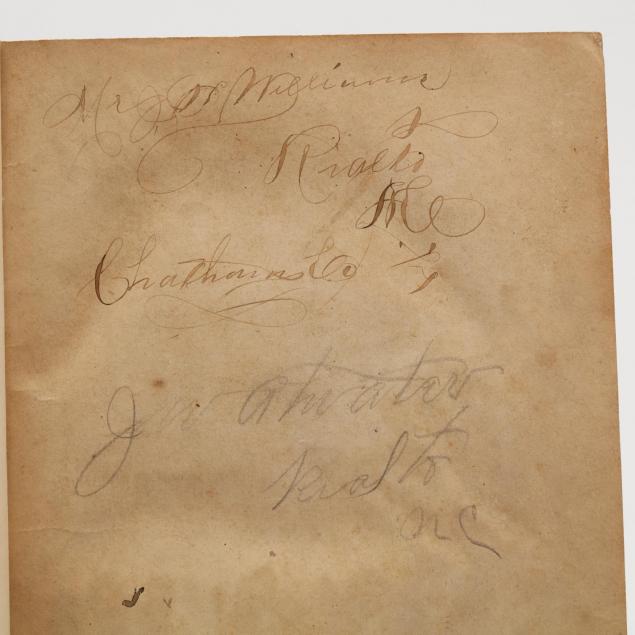 Mr J W Williams
Rialto
NC
Chatham Co
J W Atwater
Rialto
NC